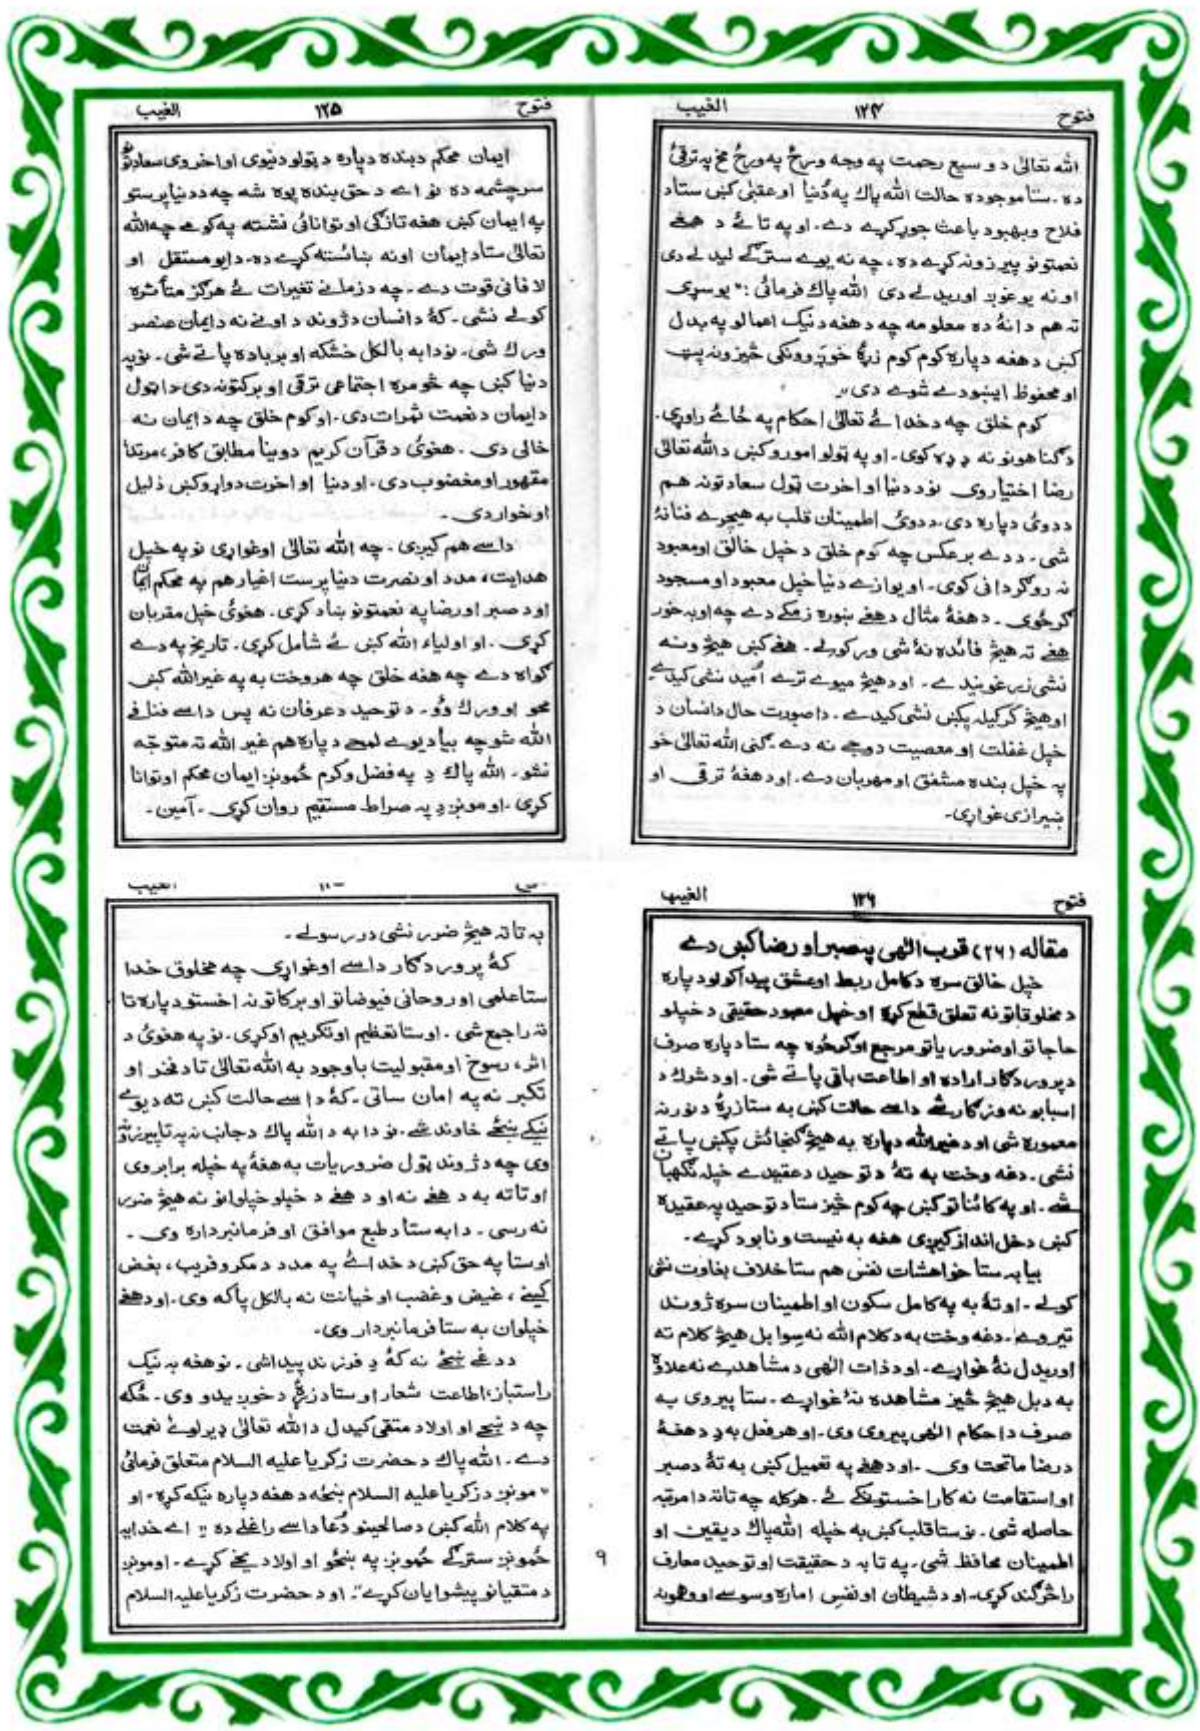 فتوح ۱۲۴ الغیب
الله تعالیٰ د وسیع رحمت په وجه ورځ په ورځ مخ په ترقئ
ده۔ ستا موجوده حالت الله پاک په دُنیا او عقبیٰ کښ ستا د
فلاح وبهبود باعث جوړ کړے دے۔ او په تا ئے د هغے
نعمتونو پیرزونه کړے ده، چه نه یوے سترګے لیدلے دی
او نه یو غوږ اوریدلے دی الله پاک فرمائی :" یو سړی
ته هم دا نۀ ده معلومه چه د هغه د نیک اعمالو په بدل
کښ د هغه دپاره کوم کوم زړۀ خوږوونکی څیزونه پټ
او محفوظ ایښودے شوے دی"۔
کوم خلق چه د خدائے تعالیٰ احکام په ځائے راوړی۔
د ګناهونو نه ډډه کوی۔ او په ټولو امورو کښ د الله تعالیٰ
رضا اختیاروی نو د دنیا او اخرت ټول سعادتونه هم
د دوئ دپاره دی۔ د دوئ اطمینان قلب به هیچرے فنا نۀ
شی۔ د دے برعکس چه کوم خلق د خپل خالق او معبود
نه روګردانی کوی۔ او یوازے دنیا خپل معبود او مسجود
ګرځوی۔ د هغۀ مثال د هغے ښوره زمکے دے چه اوبه خور
هغے ته هیڅ فائده نۀ شی ورکولے۔ هغے کښ هیڅ ونه
نشی زرغونیدے۔ او د هیڅ میوے ترے اُمید نشی کیدے
او هیڅ کرکیله پکښ نشی کیدے۔ دا صورت حال د انسان د
خپل غفلت او معصیت د وجے نه دے۔ ګنی الله تعالیٰ خو
په خپل بنده مشفق او مهربان دے۔ او د هغۀ ترقی او
ښیرازی غواړی۔
فتوح ۱۲۵ الغیب
ایمان محکم د بنده دپاره د ټولو دنیوی او اخروی سعادتونو
سرچشمه ده نو اے د حق بنده پوه شه چه د دنیا پرستو
په ایمان کښ هغه تازګی او توانائی نشته په کومے چه الله
تعالیٰ ستا د ایمان اونه ښائسته کړے ده۔ دا یو مستقل او
لافانی قوت دے۔ چه د زمانے تغیرات ئے هرګز متأثره
کولے نشی۔ کۀ د انسان د ژوند د اونے نه د ایمان عنصر
ورک شی۔ نو دا به بالکل خشکه او برباده پاتے شی۔ نو په
دنیا کښ چه څومره اجتماعی ترقی او برکتونه دی دا ټول
د ایمان د نعمت ثمرات دی۔ او کوم خلق چه د ایمان نه
خالی دی۔ هغوئ د قرآن کریم د وینا مطابق کافر، مرتد،
مقهور او مغضوب دی۔ او دنیا او اخرت دواړو کښ ذلیل
او خوار دی۔
داسے هم کیږی۔ چه الله تعالیٰ اوغواړی نو په خپل
هدایت، مدد او نصرت دنیا پرست اغیار هم په محکم ایمان
او د صبر او رضا په نعمتونو ښاد کړی۔ هغوئ خپل مقربان
کړی۔ او اولیاء الله کښ ئے شامل کړی۔ تاریخ په دے
ګواه دے چه هغه خلق چه هر وخت به په غیر الله کښ
محو او ورک وُو۔ د توحید د عرفان نه پس داسے فنا فی
الله شو چه بیا د یوے لمحے دپاره هم غیر الله ته متوجّه
نشو۔ الله پاک دِ په فضل وکرم ځمونږ ایمان محکم او توانا
کړی۔ او مونږ دِ په صراط مستقیم روان کړی۔ آمین۔
فتوح ۱۲۶ الغیب
مقاله (۲۶) قرب الٰهی په صبر او رضا کښ دے
خپل خالق سره د کامل ربط او عشق پیدا کولو دپاره
د مخلوقاتو نه تعلق قطع کړه او خپل معبود حقیقی د خپلو
حاجاتو او ضروریاتو مرجع اوګرځوه چه ستا دپاره صرف
د پروردګار اراده او اطاعت باقی پاتے شی۔ او د شرک د
اسبابو نه وزګار شے داسے حالت کښ به ستا زړۀ د نور نه
معموره شی او د غیر الله دپاره به هیڅ ګنجائش پکښ پاتے
نشی۔ دغه وخت به تۀ د توحید د عقیدے خپله نګهبان
شے۔ او په کائناتو کښ چه کوم څیز ستا د توحید په عقیده
کښ دخل انداز کیږی هغه به نیست و نابود کړے۔
بیا به ستا خواهشات نفس هم ستا خلاف بغاوت نشی
کولے۔ او تۀ به په کامل سکون او اطمینان سره ژوند
تیروے۔ دغه وخت به د کلام الله نه سِوا بل هیڅ کلام ته
اوریدل نۀ غواړے۔ او د ذات الٰهی د مشاهدے نه علاوه
به د بل هیڅ څیز مشاهده نۀ غواړے۔ ستا پیروی به
صرف د احکام الٰهی پیروی وی۔ او هر فعل به دِ د هغۀ
د رضا ماتحت وی۔ او د هغے په تعمیل کښ به تۀ د صبر
او استقامت نه کار اخستونکے ئے۔ هرکله چه تا ته دا مرتبه
حاصله شی۔ نو ستا قلب کښ به خپله الله پاک د یقین او
اطمینان محافظ شی۔ په تا به د حقیقت او توحید معارف
راڅرګند کړی۔ او د شیطان او نفس اماره وسوسے او وهمونه
الغیب
به تا ته هیڅ ضرر نشی در رسولے۔
کۀ پروردګار داسے اوغواړی چه مخلوق خدا
ستا علمی او روحانی فیوضاتو او برکاتو نه اخستو دپاره تا
ته راجع شی۔ او ستا تعظیم او تکریم اوکړی۔ نو په هغوئ د
اثر، رسوخ او مقبولیت باوجود به الله تعالیٰ تا د فخر او
تکبر نه په امان ساتی۔ کۀ داسے حالت کښ ته د یوے
نیکے ښځے خاوند شے۔ نو دا به د الله پاک د جانب نه په تا پیرزو
وی چه د ژوند ټول ضروریات به هغۀ په خپله برابروی
او تا ته به د هغے نه او د هغے د خپلو خپلوانو نه هیڅ ضرر
نه رسی۔ دا به ستا د طبع موافق او فرمانبرداره وی۔
او ستا په حق کښ د خدائے په مدد د مکر و فریب، بغض
کینے، غیض و غضب او خیانت نه بالکل پاکه وی۔ او د هغے
خپلوان به ستا فرمانبردار وی۔
د دغے ښځے نه کۀ دِ فرزند پیدا شی۔ نو هغه به نیک
راستباز، اطاعت شعار او ستا د زړۀ د خوږیدو وی۔ ځکه
چه د ښځے او اولاد متقی کیدل د الله تعالیٰ ډیر لوئے نعمت
دے۔ الله پاک د حضرت زکریا علیه السلام متعلق فرمائی
" مونږ د زکریا علیه السلام ښځه د هغه دپاره نیکه کړه" او
په کلام الله کښ د صالحینو دُعا داسے راغلے ده " اے خدایه
ځمونږ سترګے ځمونږ په ښځو او اولاد یخے کړے۔ او مونږ
د متقیانو پیشوایان کړے"۔ او د حضرت زکریا علیه السلام
۹